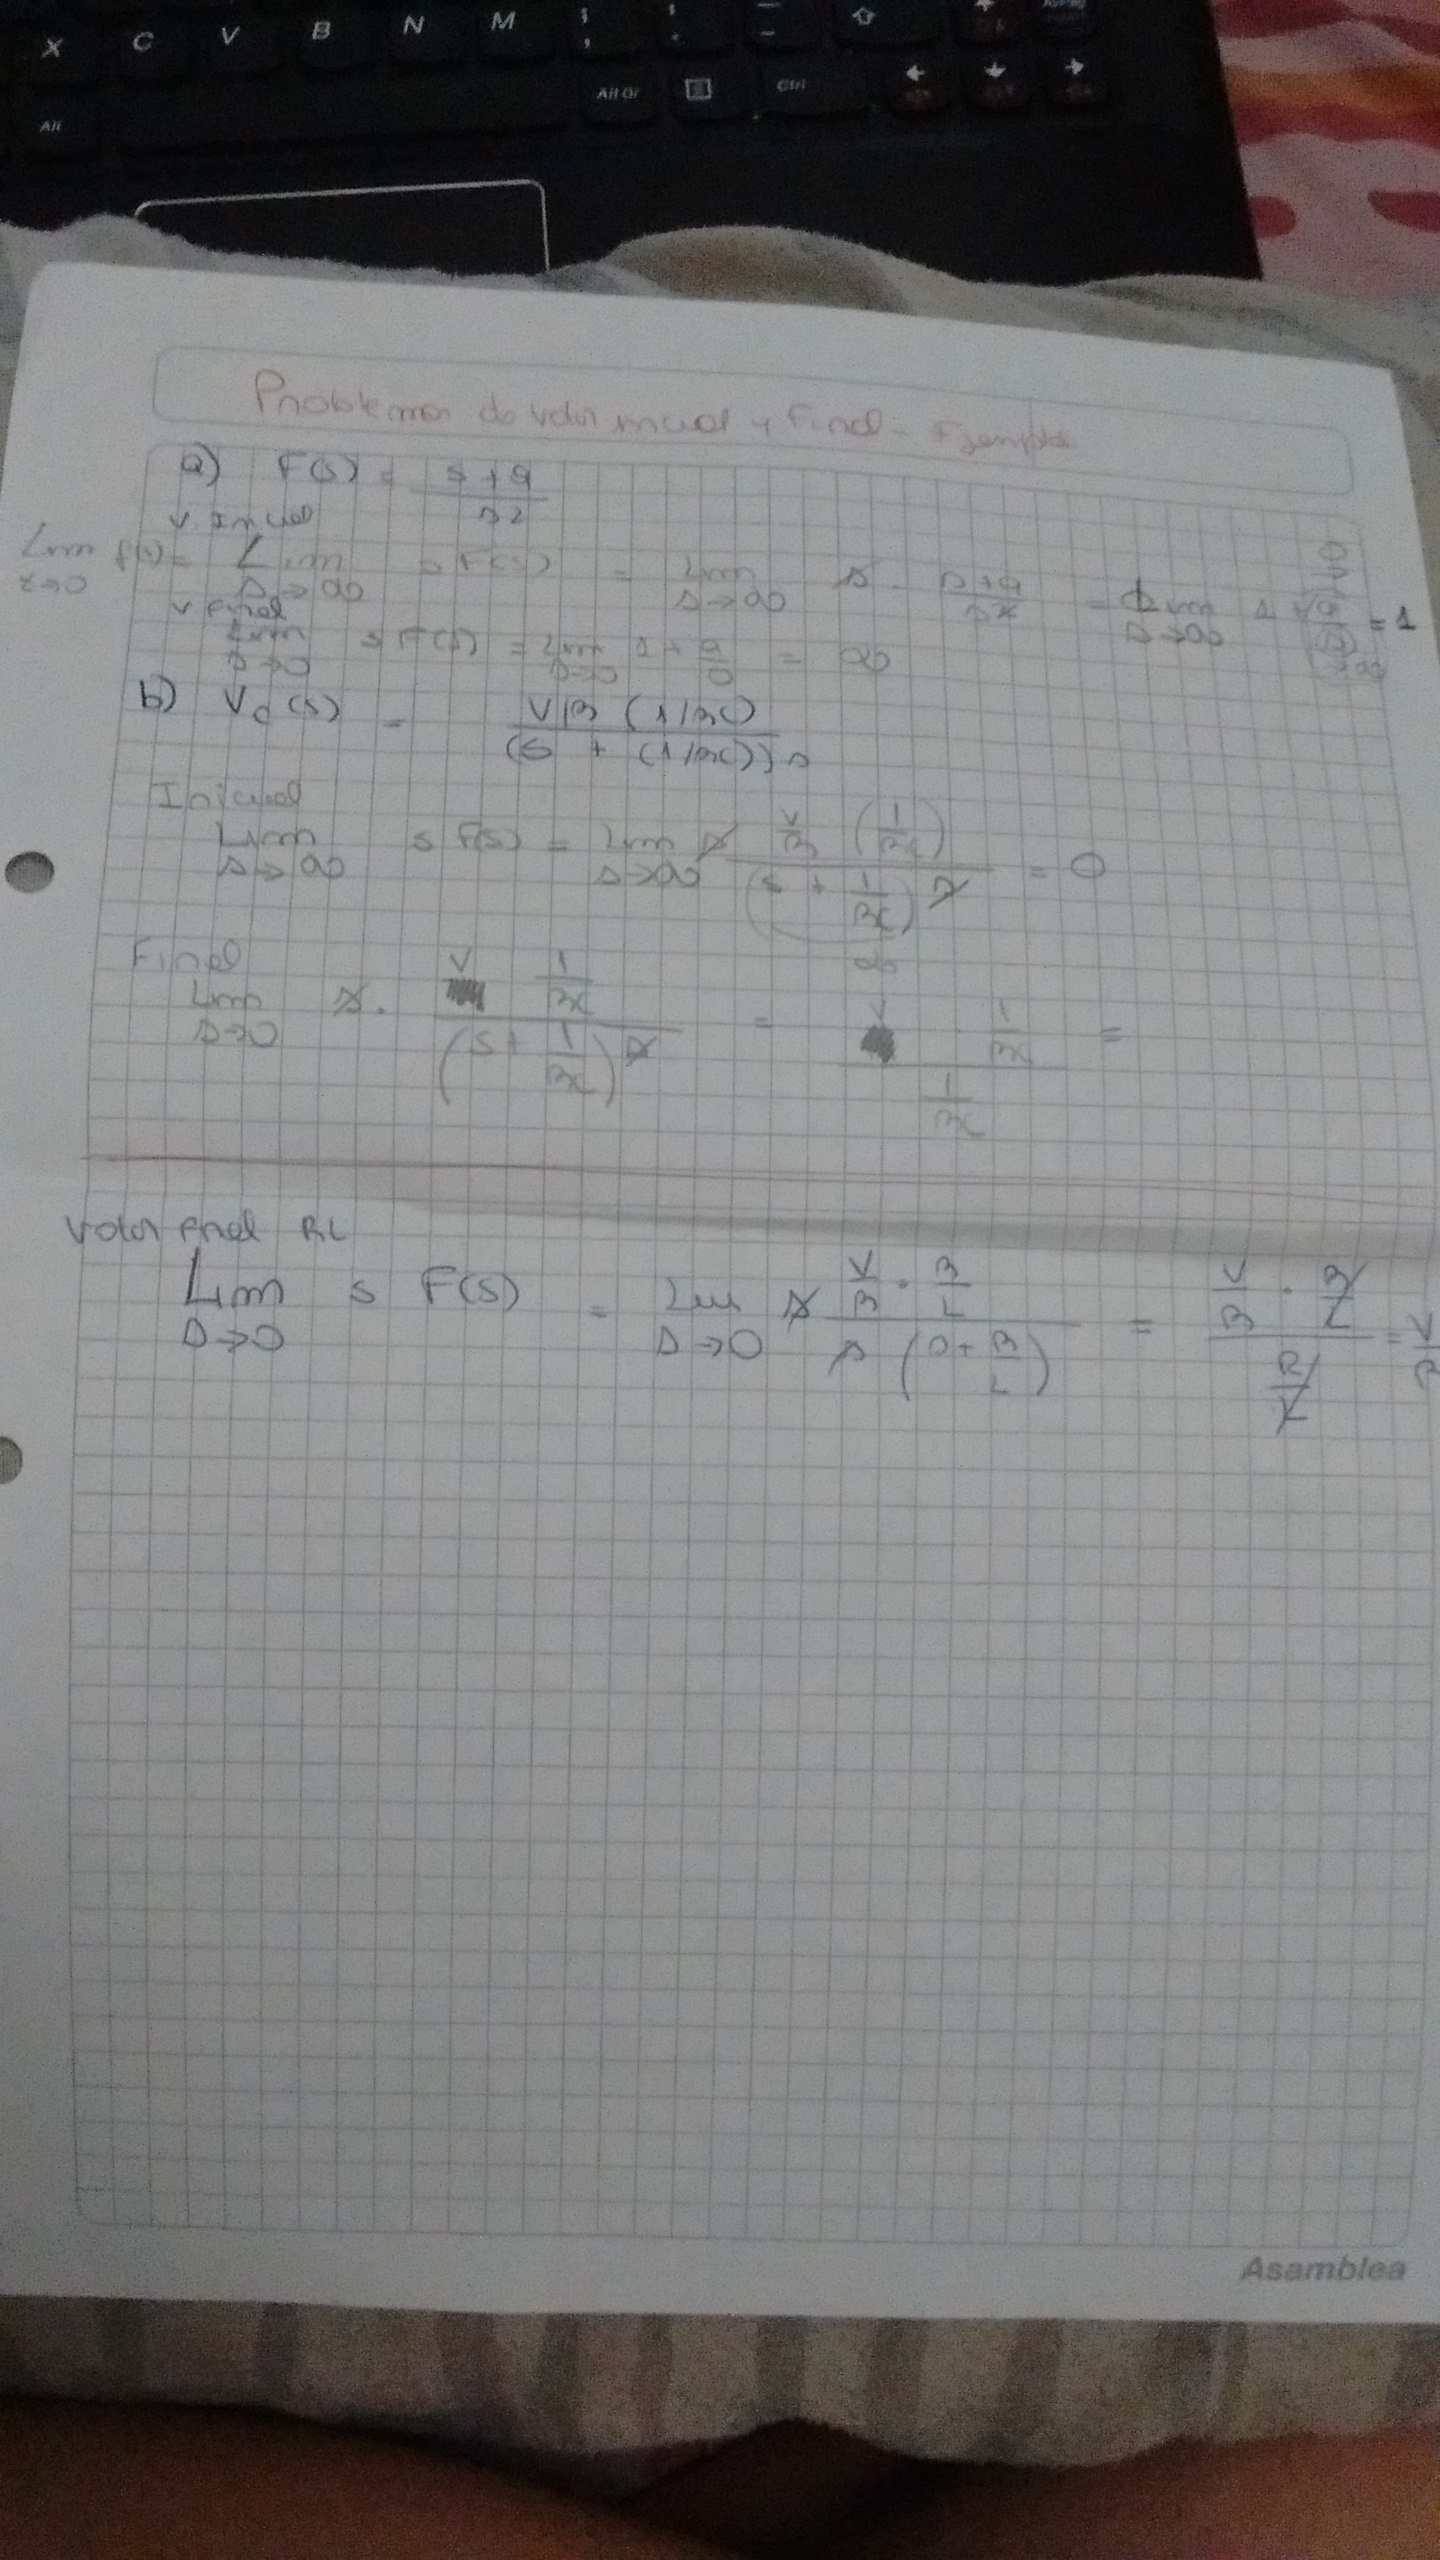 X C V B N M ; , : . _ - ⇧
Alt Alt Gr Ctrl
Problemas de valor inicial y Final - Ejemplo
a) F(s) = s+a / s2
v Inicial
Lim t→0 f(t) = Lim s→∞ s F(s) = Lim s→∞ s · s+a / s2 = Lim s→∞ 1 + a/s = 1
v Final
Lim s→0 s F(s) = Lim s→0 1 + a/0 = ∞
b) Vc(s) = V/R (1/RC) / (s + (1/RC)) s
Inicial
Lim s→∞ s F(s) = Lim s→∞ s V/R (1/RC) / (s + 1/RC) s = 0
∞
Final
Lim s→0 s · V 1/RC / (s + 1/RC) s = V 1/RC / 1/RC =
Valor final RL
Lim s→0 s F(s) = Lim s→0 s V/R · R/L / s (s + R/L) = V/R · R/L / R/L = V/R
Asamblea